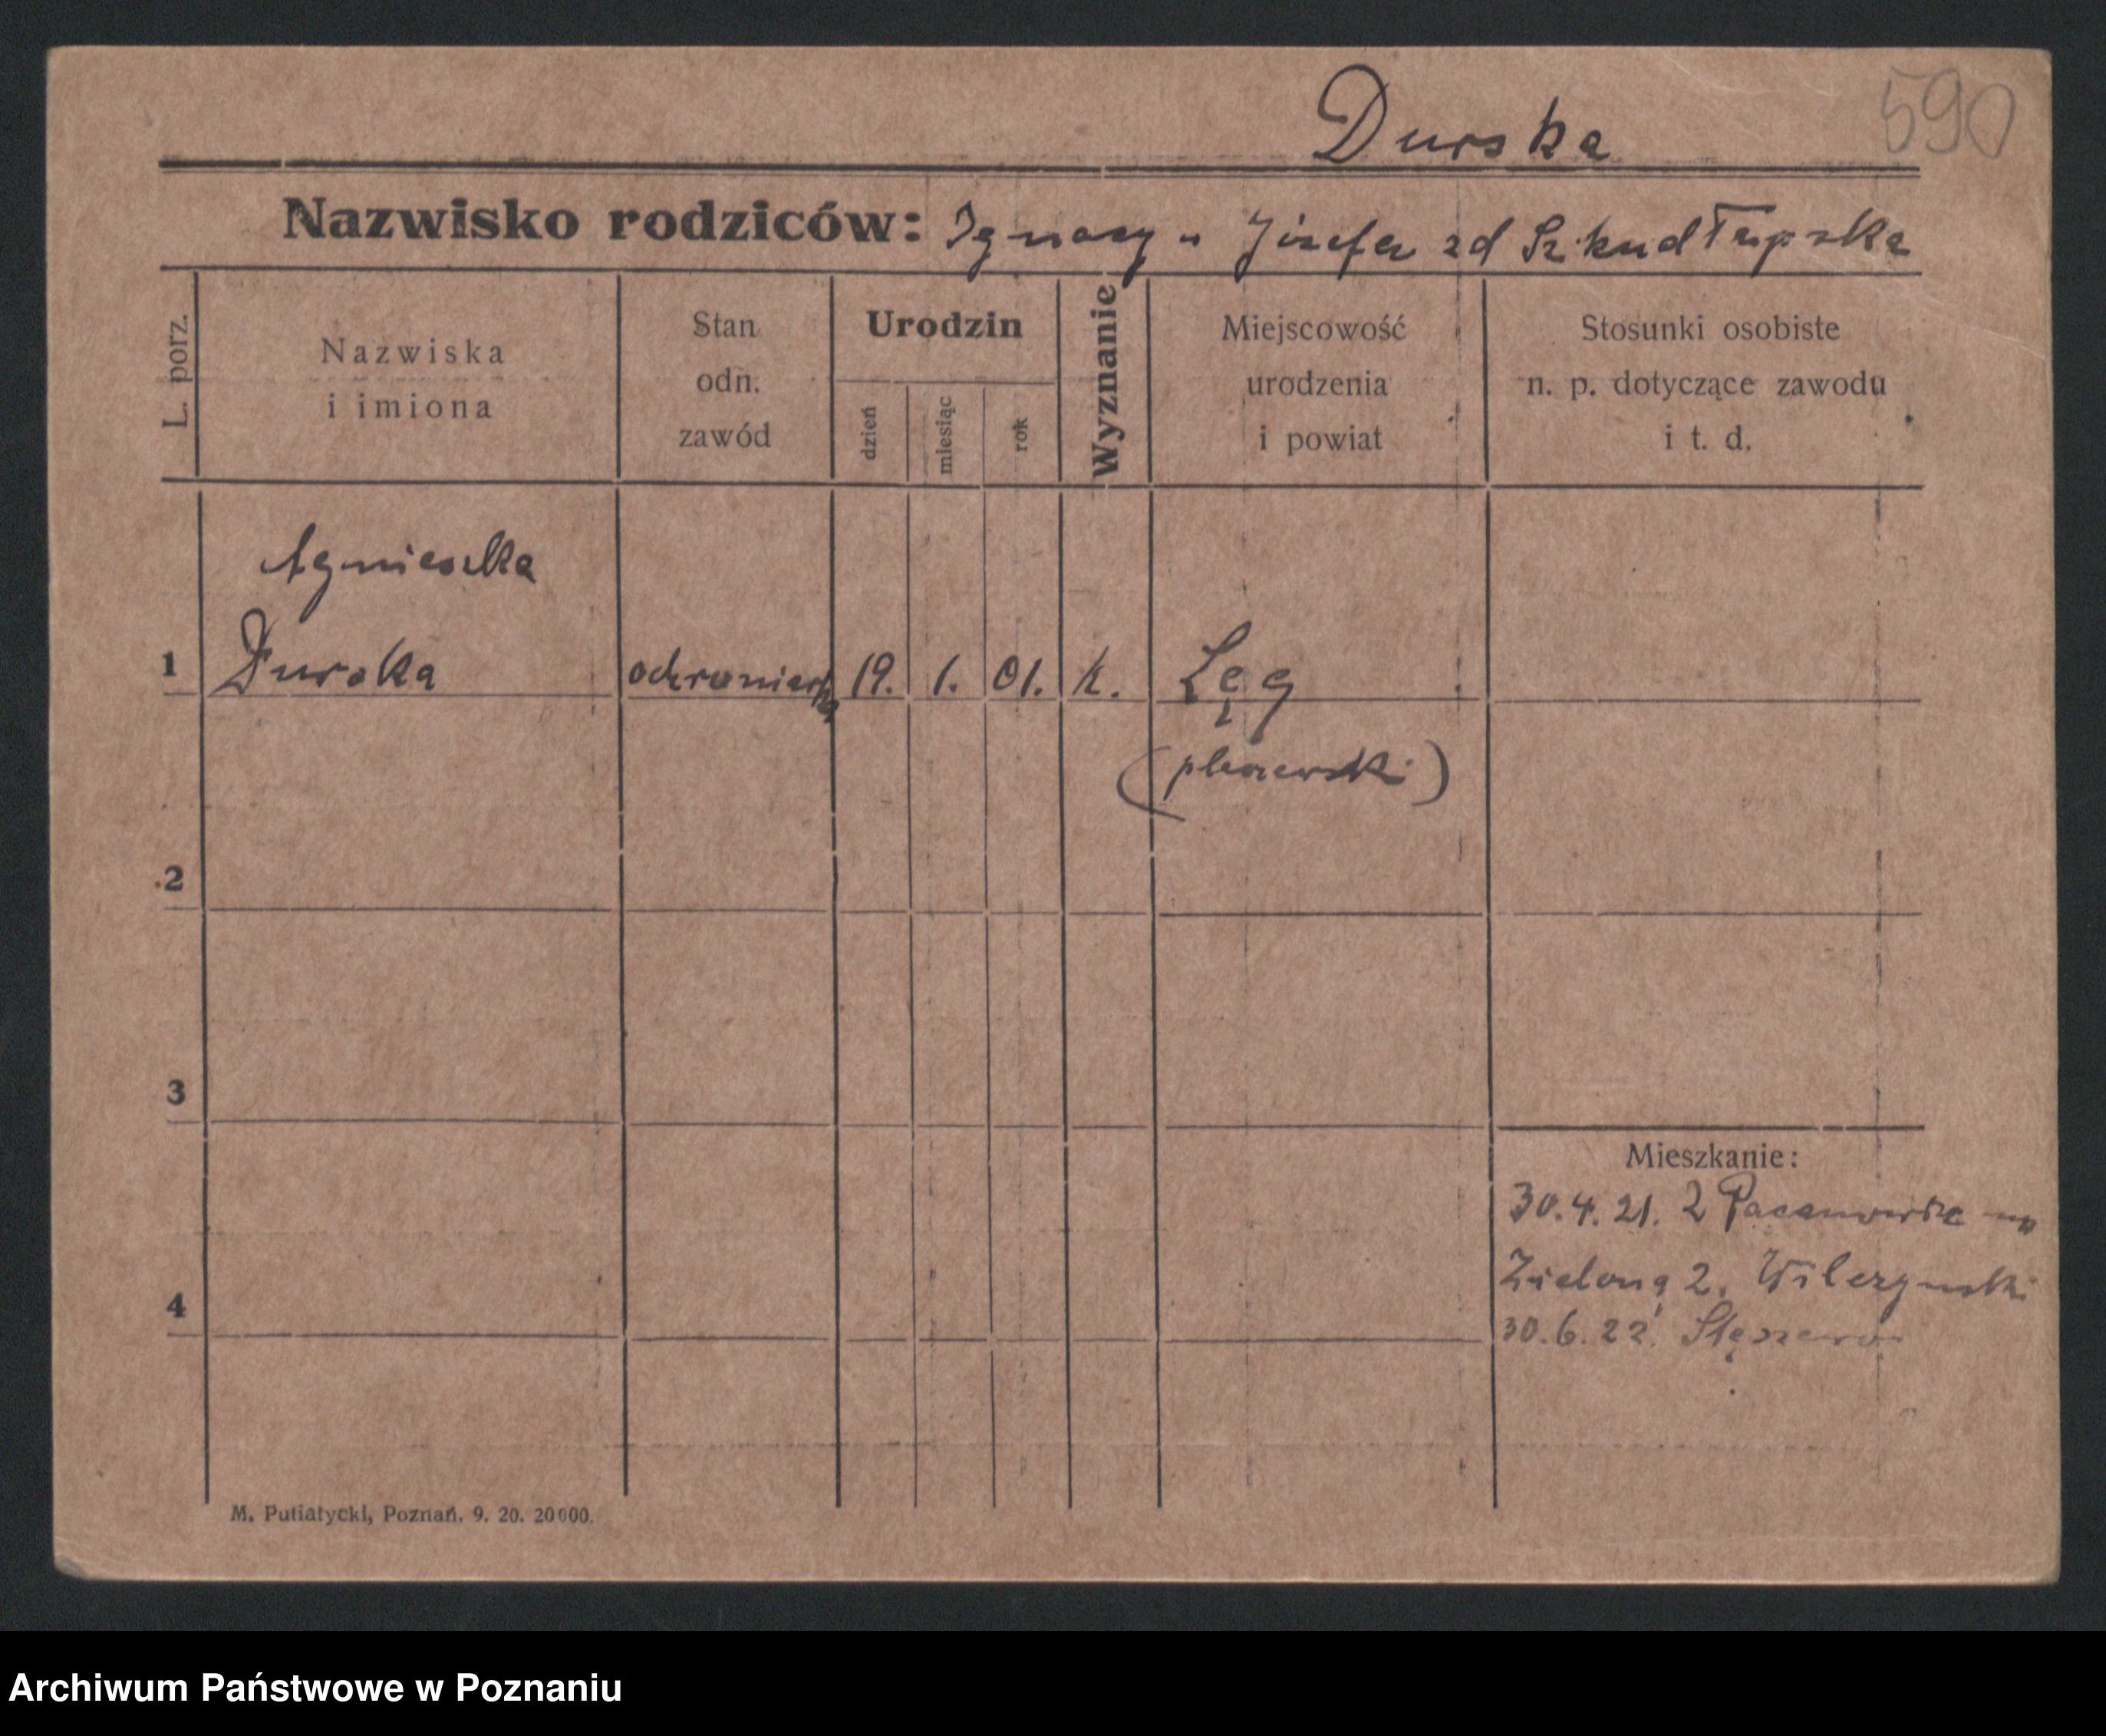 590
Durska
Nazwisko rodziców: Ignacy u Józefa zd Szkudłapska
L. porz.
Nazwiska
i imiona
Stan
odn.
zawód
Urodzin
dzień
miesiąc
rok
Wyznanie
Miejscowość
urodzenia
i powiat
Stosunki osobiste
n. p. dotyczące zawodu
i t. d.
Agnieszka
1 Durska 19. 1. 01. k. Łęg
(pleszewski)
2
3
Mieszkanie:
30.4.21. Z Pacanowic na
Zieloną 2. Wilczynski
4
30.6.22. Stęszewo
M. Putiatycki, Poznań. 9. 20. 20000.
Archiwum Państwowe w Poznaniu